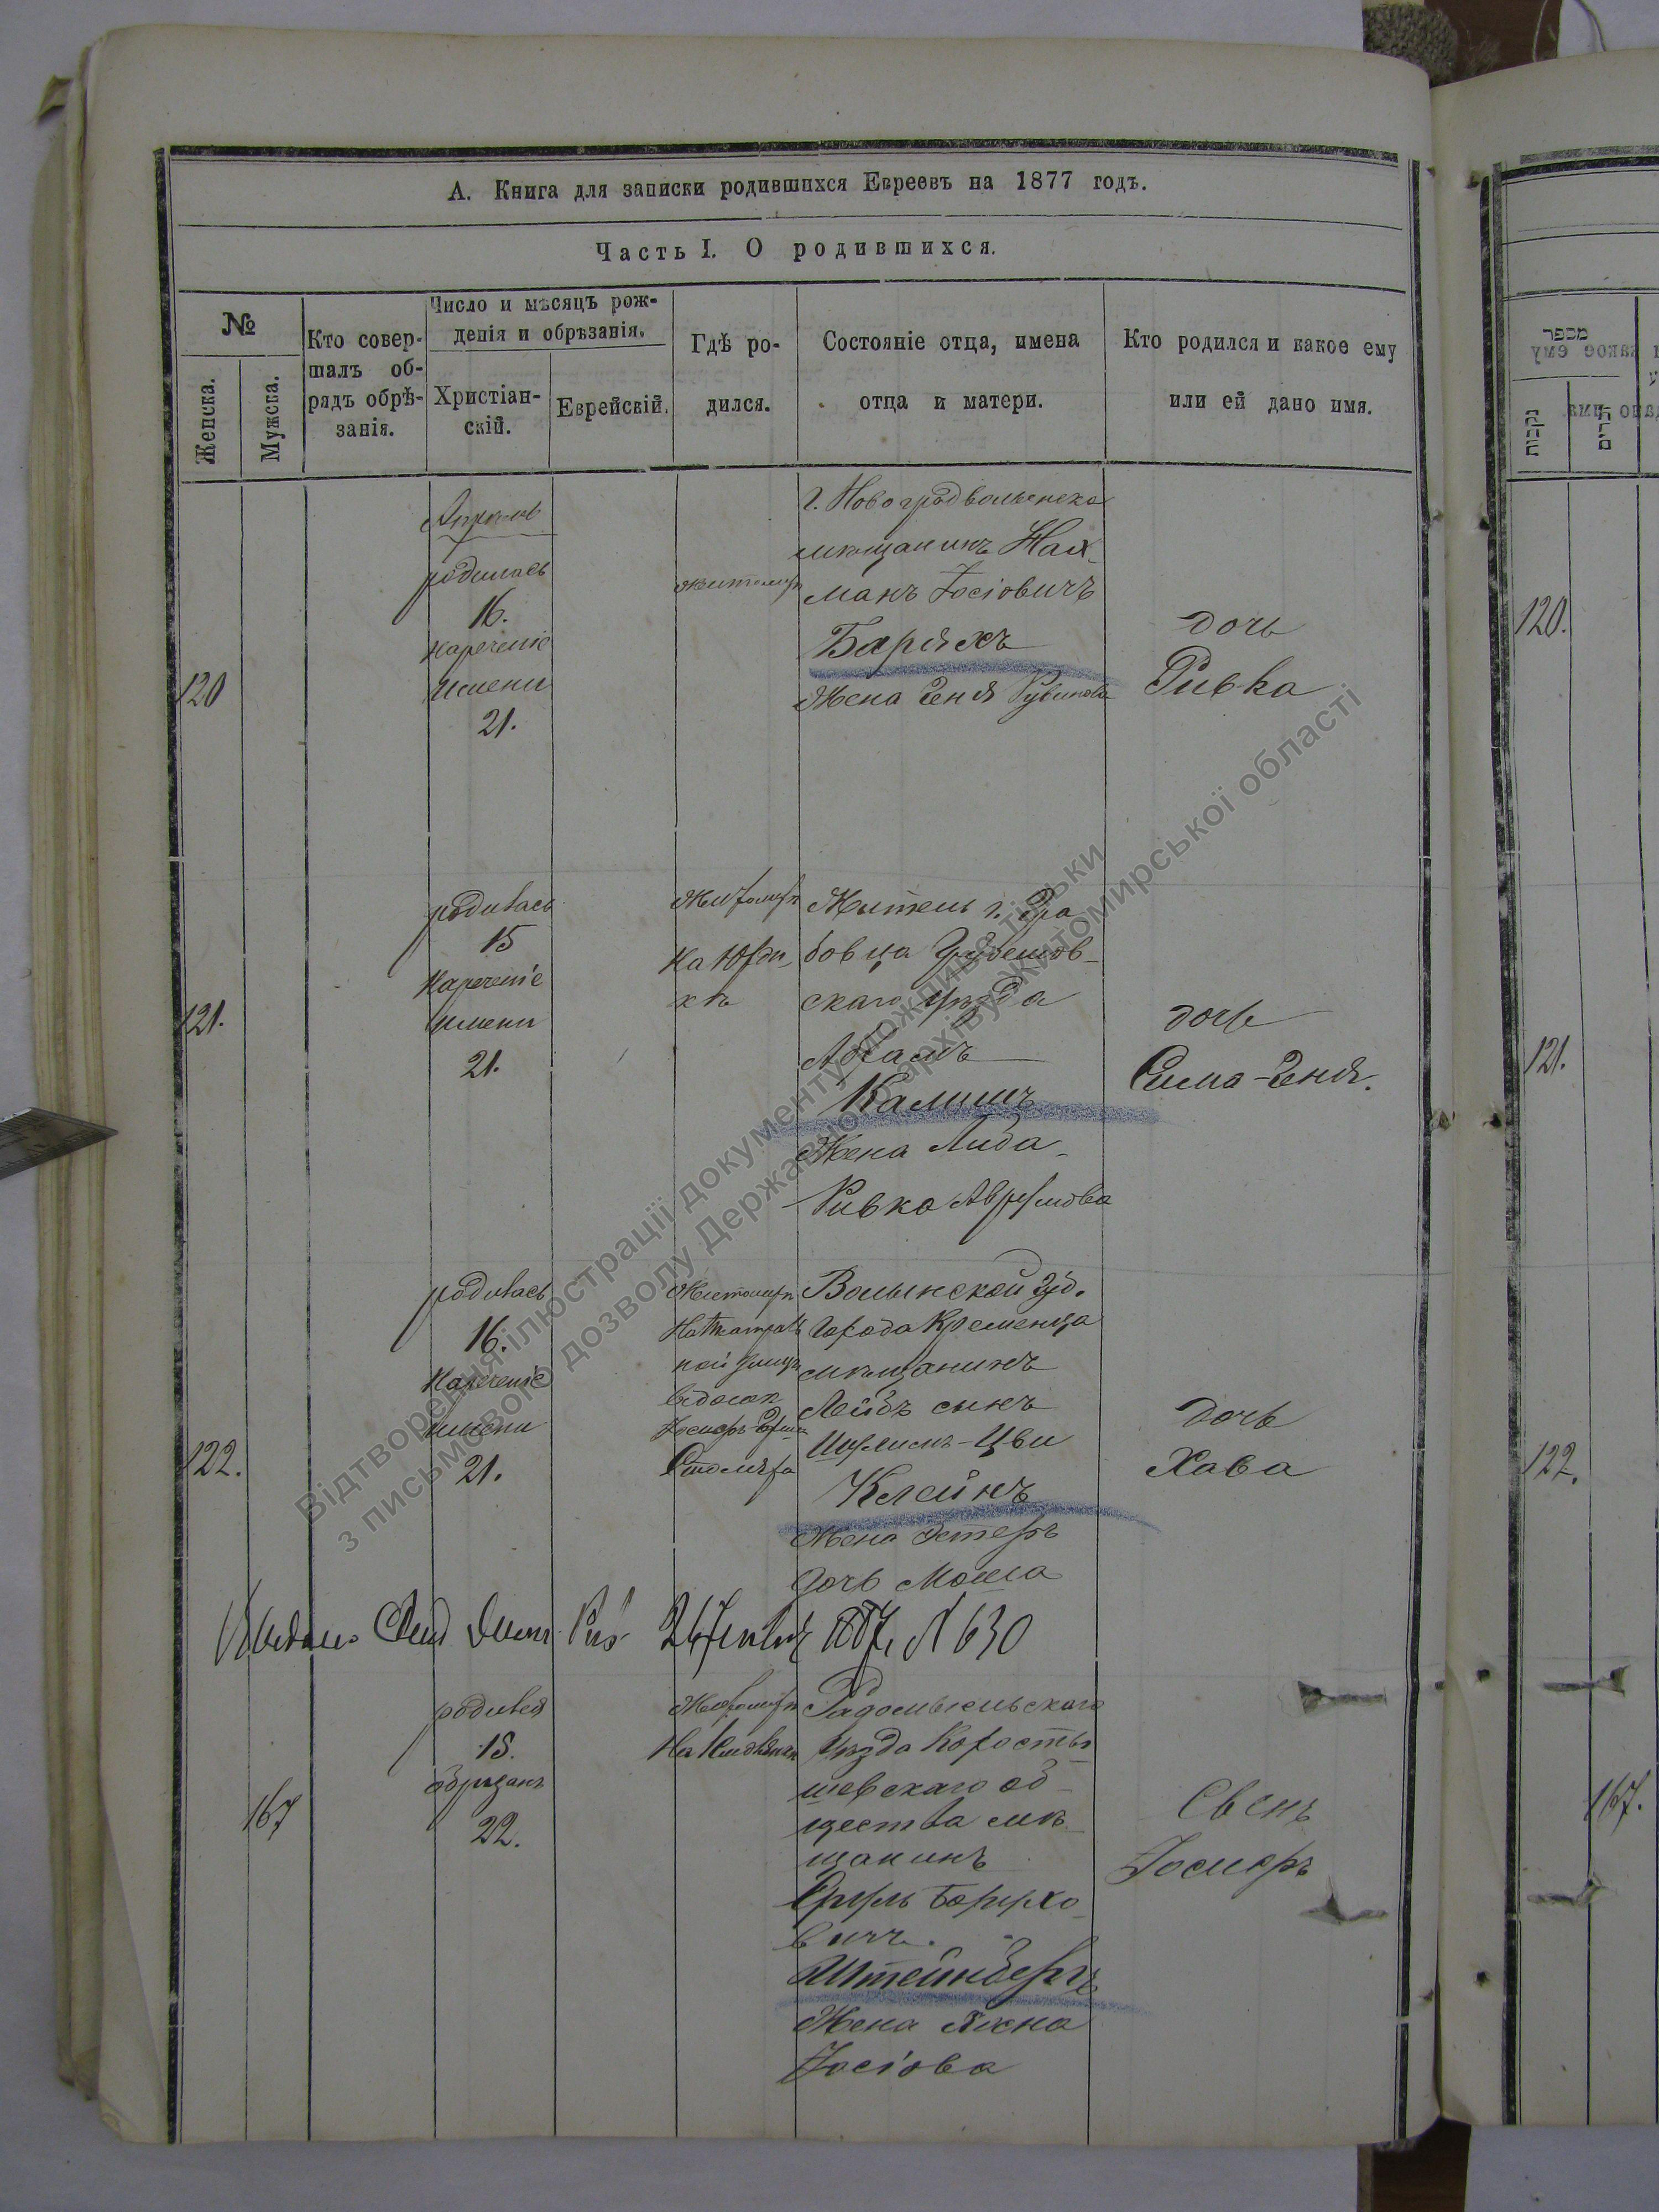 А. Книга для записки родившихся Евреевъ на 1877 годъ.
Часть I. О родившихся.
№
Женска.
Мужска.
Кто совер-
шалъ об-
рядъ обрѣ-
занія.
Число и мѣсяцъ рож-
денія и обрѣзанія.
Христіан-
скій.
Еврейскій.
Гдѣ ро-
дился.
Состояніе отца, имена
отца и матери.
Кто родился и какое ему
или ей дано имя.
120
Апрель
родилась
16.
наречение
имени
21.
Житомиръ
г. Новоградволынска
мѣщанинъ Нах-
манъ Іосіовичъ
Барахъ
Жена Геня Рувинова
дочь
Ривка
121.
родилась
15
Наречение
имени
21.
Житомиръ
Житель г.
бовца Грубешов-
скаго уѣзда
Абрамъ
Калишъ
Жена Либа-
Ривка
дочь
Сима-Геня.
122.
родилась
16.
Наречение
имени
21.
Житомиръ
Волынской губ.
города Кременца
мѣщанинъ
Лейбъ сынъ
Цви
Клейнъ
Жена Эстеръ
дочь Мошка
дочь
Хава
1887, № 630
167
родился
15.
обрѣзанъ
22.
Житомиръ
Радомысльскаго
уѣзда Коросты
шевскаго об-
щества мѣ-
щанинъ
Сруль Борухо-
вичъ.
Штейнбергъ
Жена
Іосіова
Сынъ
Іосифъ
מספר
נקבות
זכרים
120.
121.
122.
167.
Відтворення ілюстрації документу можливе тільки
з письмового дозволу Державного архіву Житомирської області